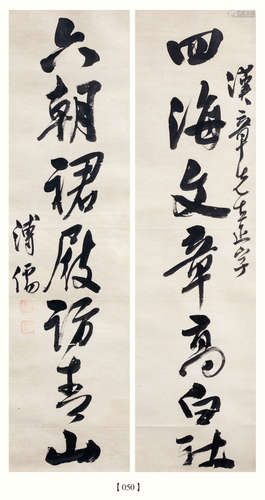 漢章先生正字
四海文章高白社
六朝裙屐訪青山
溥儒
【050】